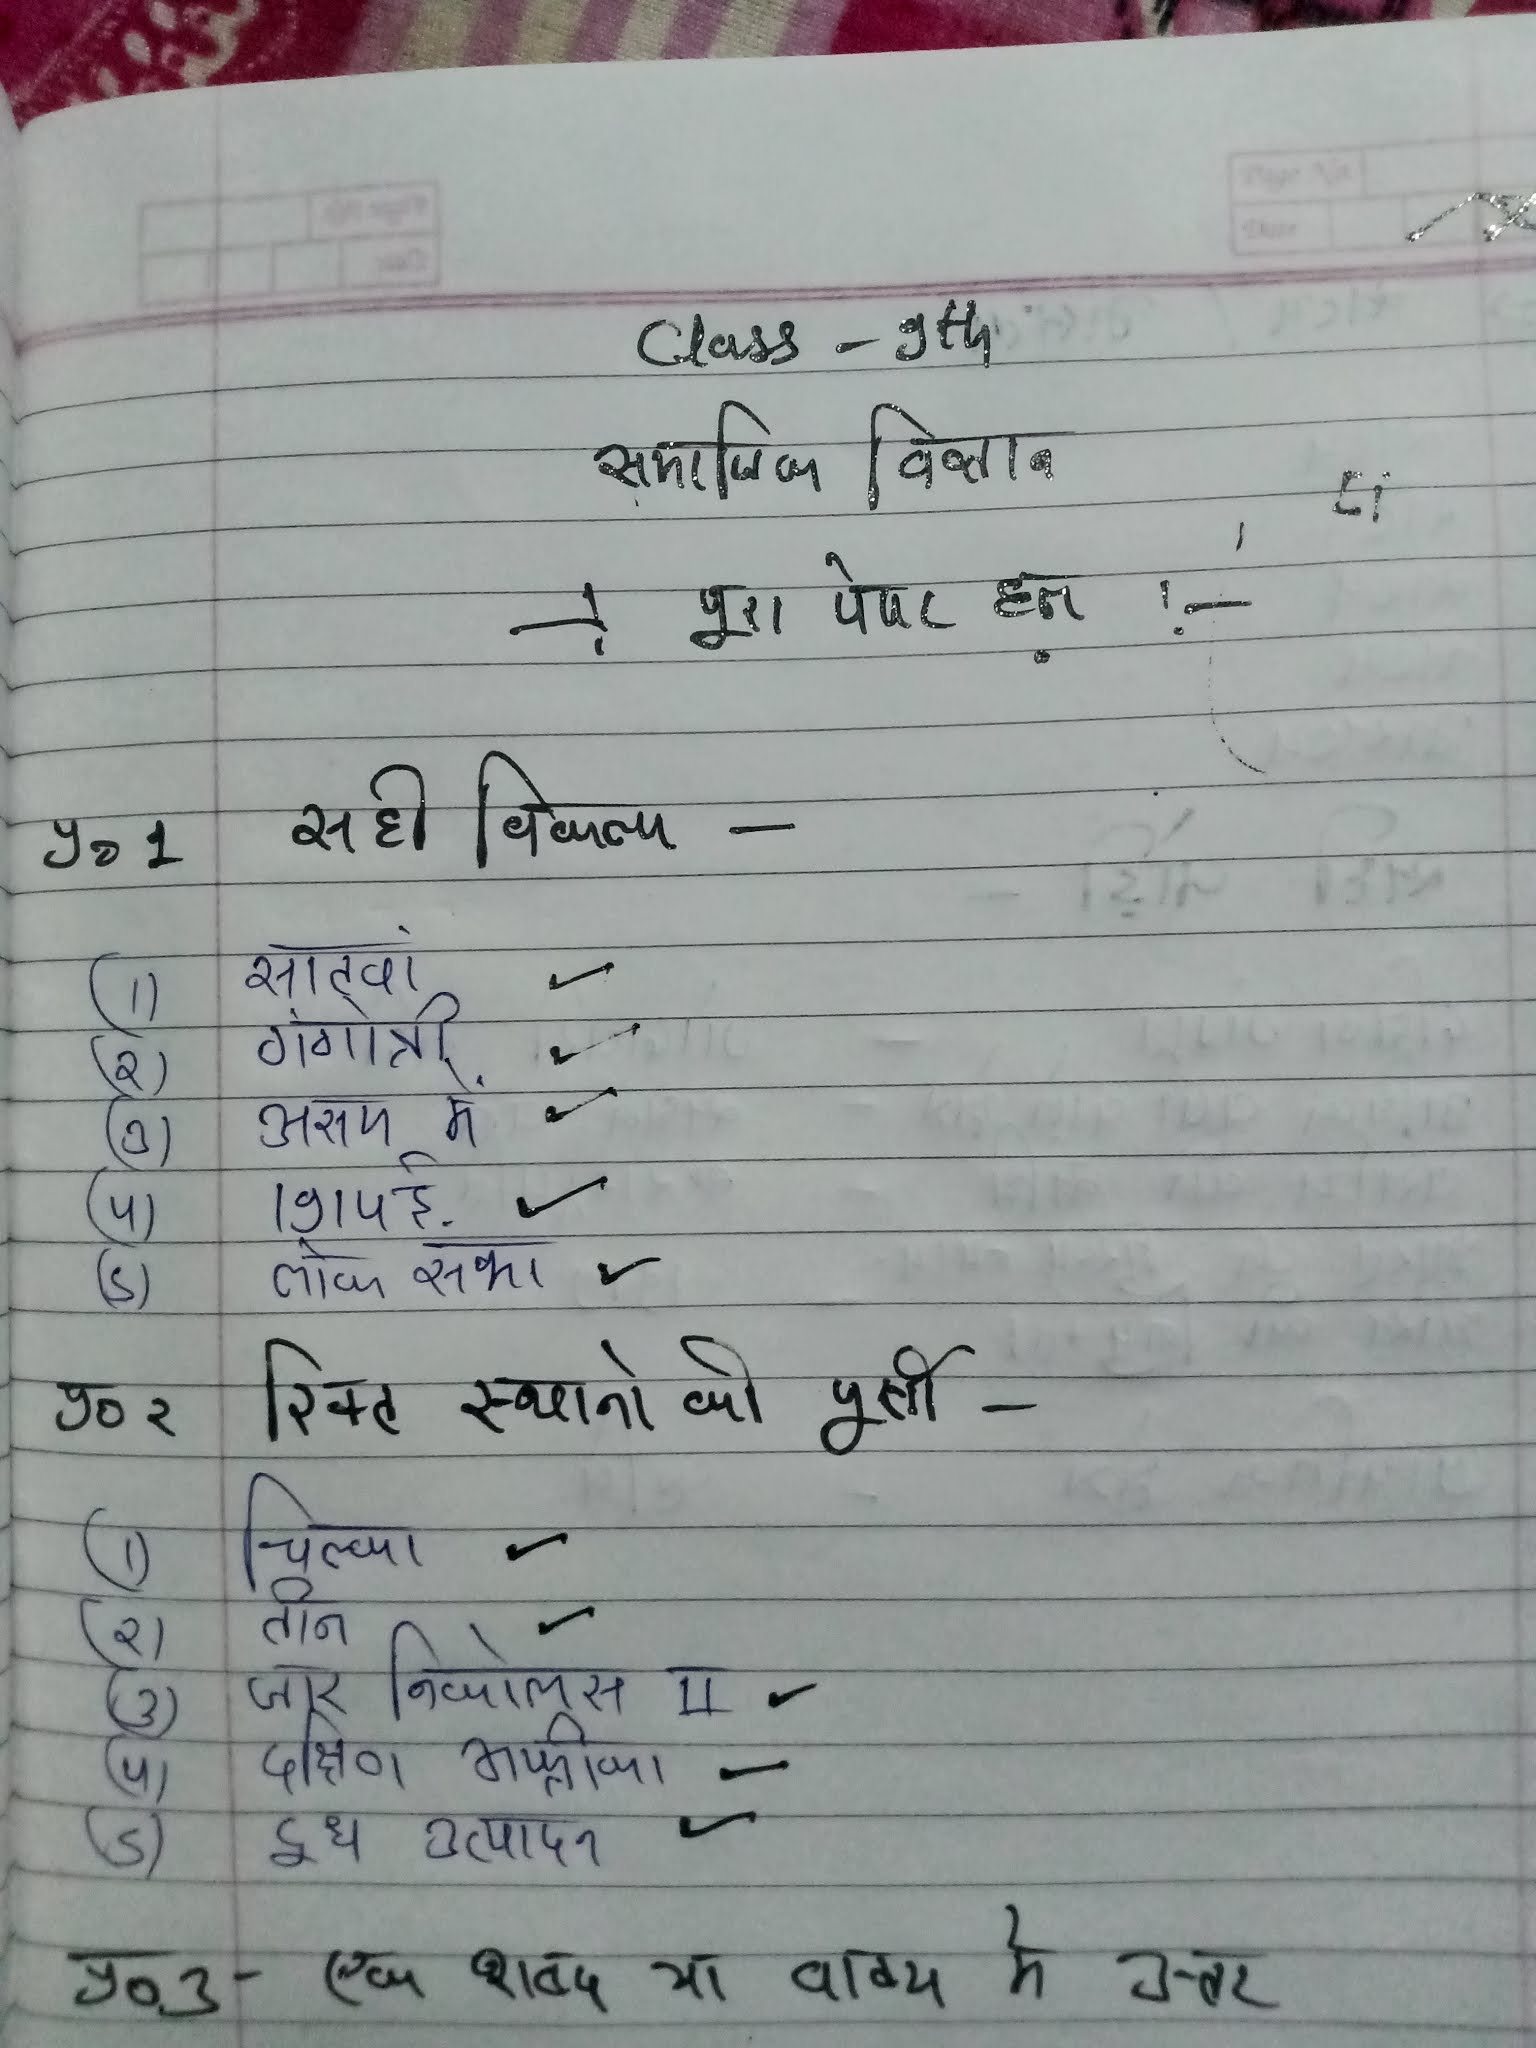 Class - 9th
समाजिक विज्ञान
-: पूरा पेपर हल :-
प्र० 1 सही विकल्प -
(1) सातवां
(२) गंगोत्री
(3) असम में
(4)
(5) लोक सभा
प्र० २ रिक्त स्थानो की पूर्ती -
(1) चिल्का
(२) तीन
(3) जार निकोलस II
(4) दक्षिण अफ्रीका
(5) दुध उत्पादन
प्र० 3 - एक शब्द या वाक्य में उत्तर